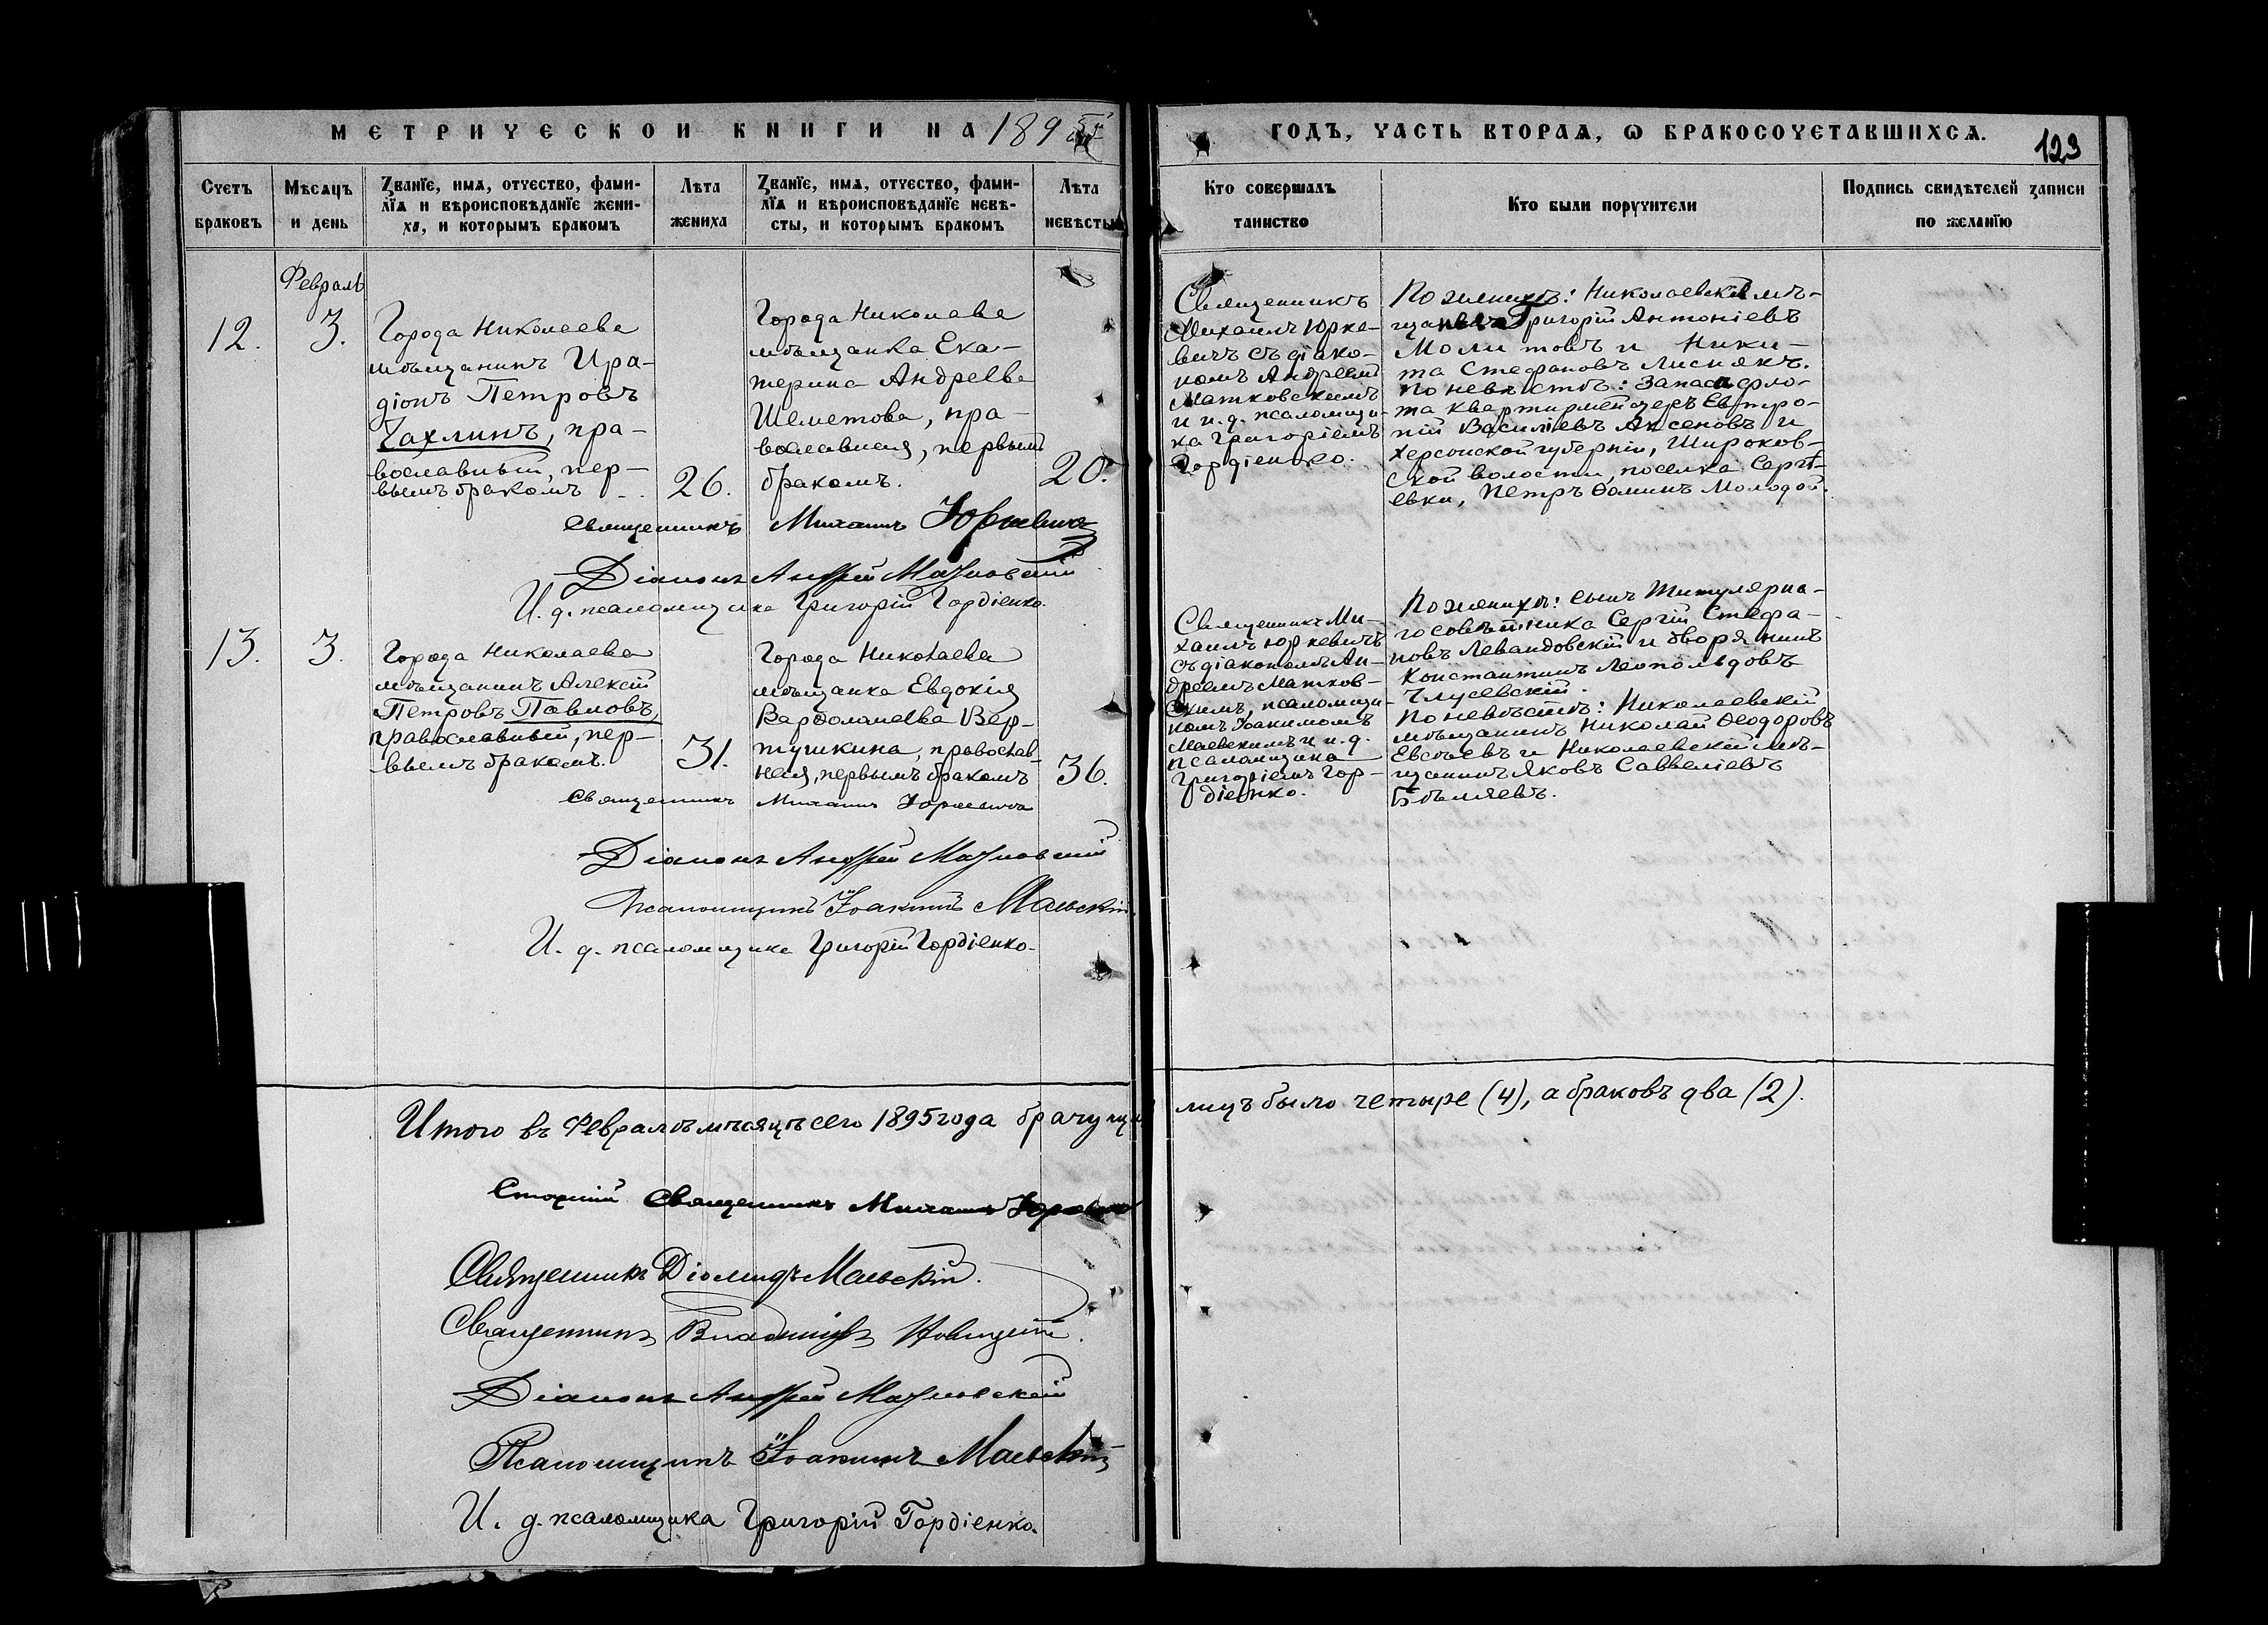 МЕТРИЧЕСКОЙ КНИГИ НА 1895
ГОДЪ, ЧАСТЬ ВТОРАЯ, Ѡ БРАКОСОЧЕТАВШИХСЯ.
123
Счетъ браковъ
Мѣсяцъ и день
Званїе, имя, отчество, фами-
лїя и вѣроисповѣданїе жени-
ха, и которымъ бракомъ
Лѣта жениха
Званїе, имя, отчество, фами-
лїя и вѣроисповѣданїе невѣ-
сты, и которымъ бракомъ
Лѣта невѣсты
Кто совершалъ таинство
Кто были поручители
Подпись свидѣтелей записи по желанїю
Февраль
12.
3.
Города Николаева
мѣщанинъ Ира-
діонъ Петровъ
Чахлинъ, пра-
вославный, пер-
вымъ бракомъ
26.
Города Николаева
мѣщанка Ека-
терина Андреева
Шеметова, пра-
вославная, первымъ
бракомъ.
20.
Священникъ
Михаилъ Юрке-
вичъ съ діако-
номъ Андреемъ
Матковскимъ
и и. д. псаломщи-
ка Григоріемъ
Гордіенко.
По женихѣ: Николаевскій мѣ-
щанинъ Григорій Антоніевъ
Молитовъ и Ники-
та Стефановъ Лиснякъ.
По невѣстѣ: Запасн. фло-
та квартирмейстеръ Евтро-
пій Василіевъ Аксеновъ и
Херсонской губерніи, Широков-
ской волости, поселка Сергѣ-
евки, Петръ Ѳоминъ Молодой.
Священникъ Михаилъ Юркевичъ
Діаконъ Андрей Матковскій
И. д. псаломщика Григорій Гордіенко.
13.
3.
Города Николаева
мѣщанинъ Алексій
Петровъ Павловъ,
православный, пер-
вымъ бракомъ.
31.
Города Николаева
мѣщанка Евдокія
Варѳоломеева Вер-
тушкина, православ-
ная, первымъ бракомъ
36.
Священникъ Ми-
хаилъ Юркевичъ
съ діакономъ Ан-
дреемъ Матков-
скимъ, псаломщи-
комъ Іоакимомъ
Маевскимъ и и. д.
псаломщика
Григоріемъ Гор-
діенко.
По женихѣ: сынъ Титулярна-
го совѣтника Сергій Стефа-
новъ Левандовскій и дворянинъ
Константинъ Леопольдовъ
По невѣстѣ: Николаевскій
мѣщанинъ Николай Ѳеодоровъ
Евсѣевъ и Николаевскій мѣ-
щанинъ Яковъ Савеліевъ
Бѣляевъ.
Священникъ Михаилъ Юркевичъ
Діаконъ Андрей Матковскій
Псаломщикъ Іоакимъ Маевскій
И. д. псаломщика Григорій Гордіенко.
Итого въ Февралѣ мѣсяцѣ сего 1895 года брачущихся лицъ было четыре (4), а браковъ два (2).
Старшій Священникъ Михаилъ Юркевичъ
Священникъ Діомидъ Маевскій.
Священникъ Владиміръ Новицкій.
Діаконъ Андрей Матковскій
Псаломщикъ Іоакимъ Маевскій
И. д. псаломщика Григорій Гордіенко.